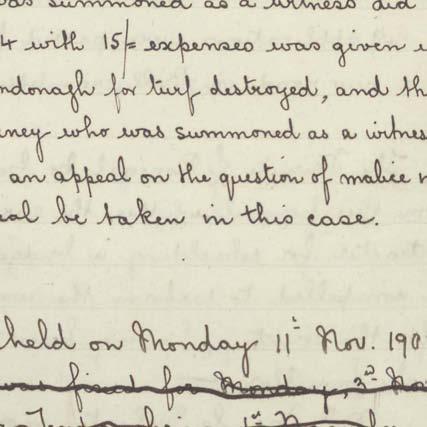 was summoned as a witness did
4 with 15/= expenses was given
ndonagh for turf destroyed, and th
ney who was summoned as a witnes
an appeal on the question of malice
al be taken in this case.
held on Monday 11ᵗ Nov. 190
was fixed for Monday, 3ʳᵈ No
1ˢᵗ